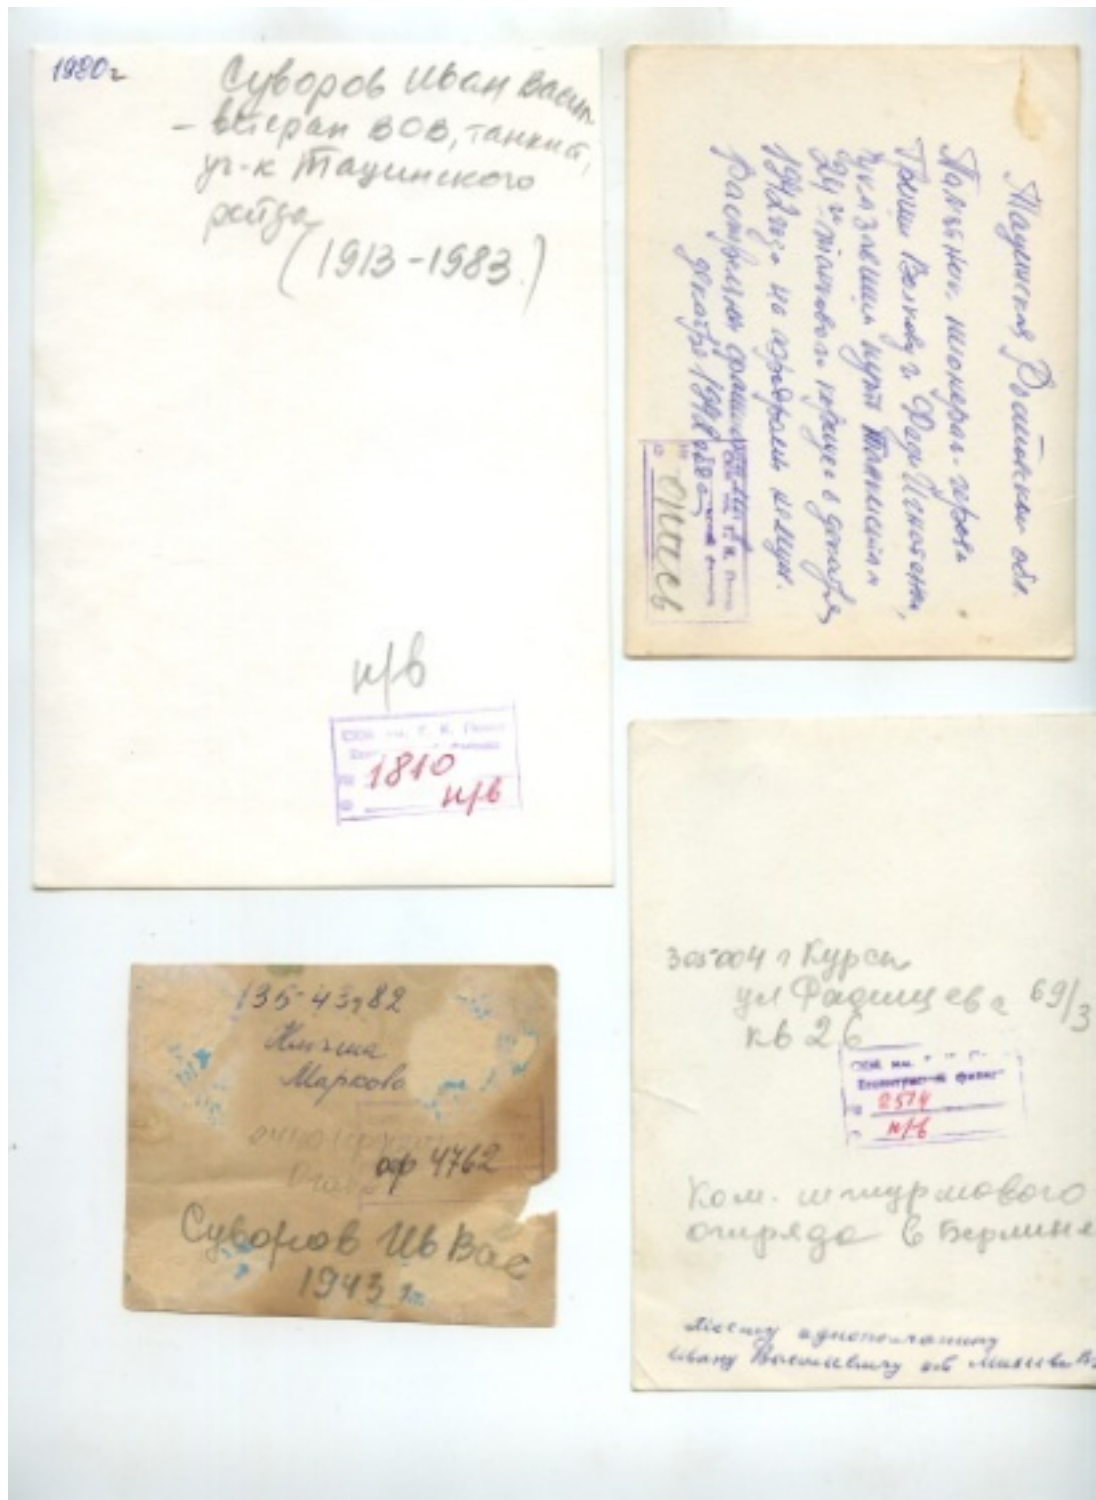 1980г
Суворов Иван Васил
- ветеран ВОВ, танкист,
уч-к Тацинского
рейда
(1913-1983.)
н/в
1810
н/в
Тацинская Ростовская обл.
Памятник пионерам-героям
Грише Волкову и Феде Игнатенко,
указавшим путь танкистам
24 танкового корпуса в декабре
1942 года на аэродром немцев.
Расстреляны фашистами
декабре 1942 года
опись
135-43-82
Маркова
оф 4762
Суворов Ив Вас
1943 г.
305004 г Курск
ул Радищева 69/3
кв 26
2574
н/в
Ком. штурмового
отряда в Берлине
однополчанину
Ивану Васильевичу от